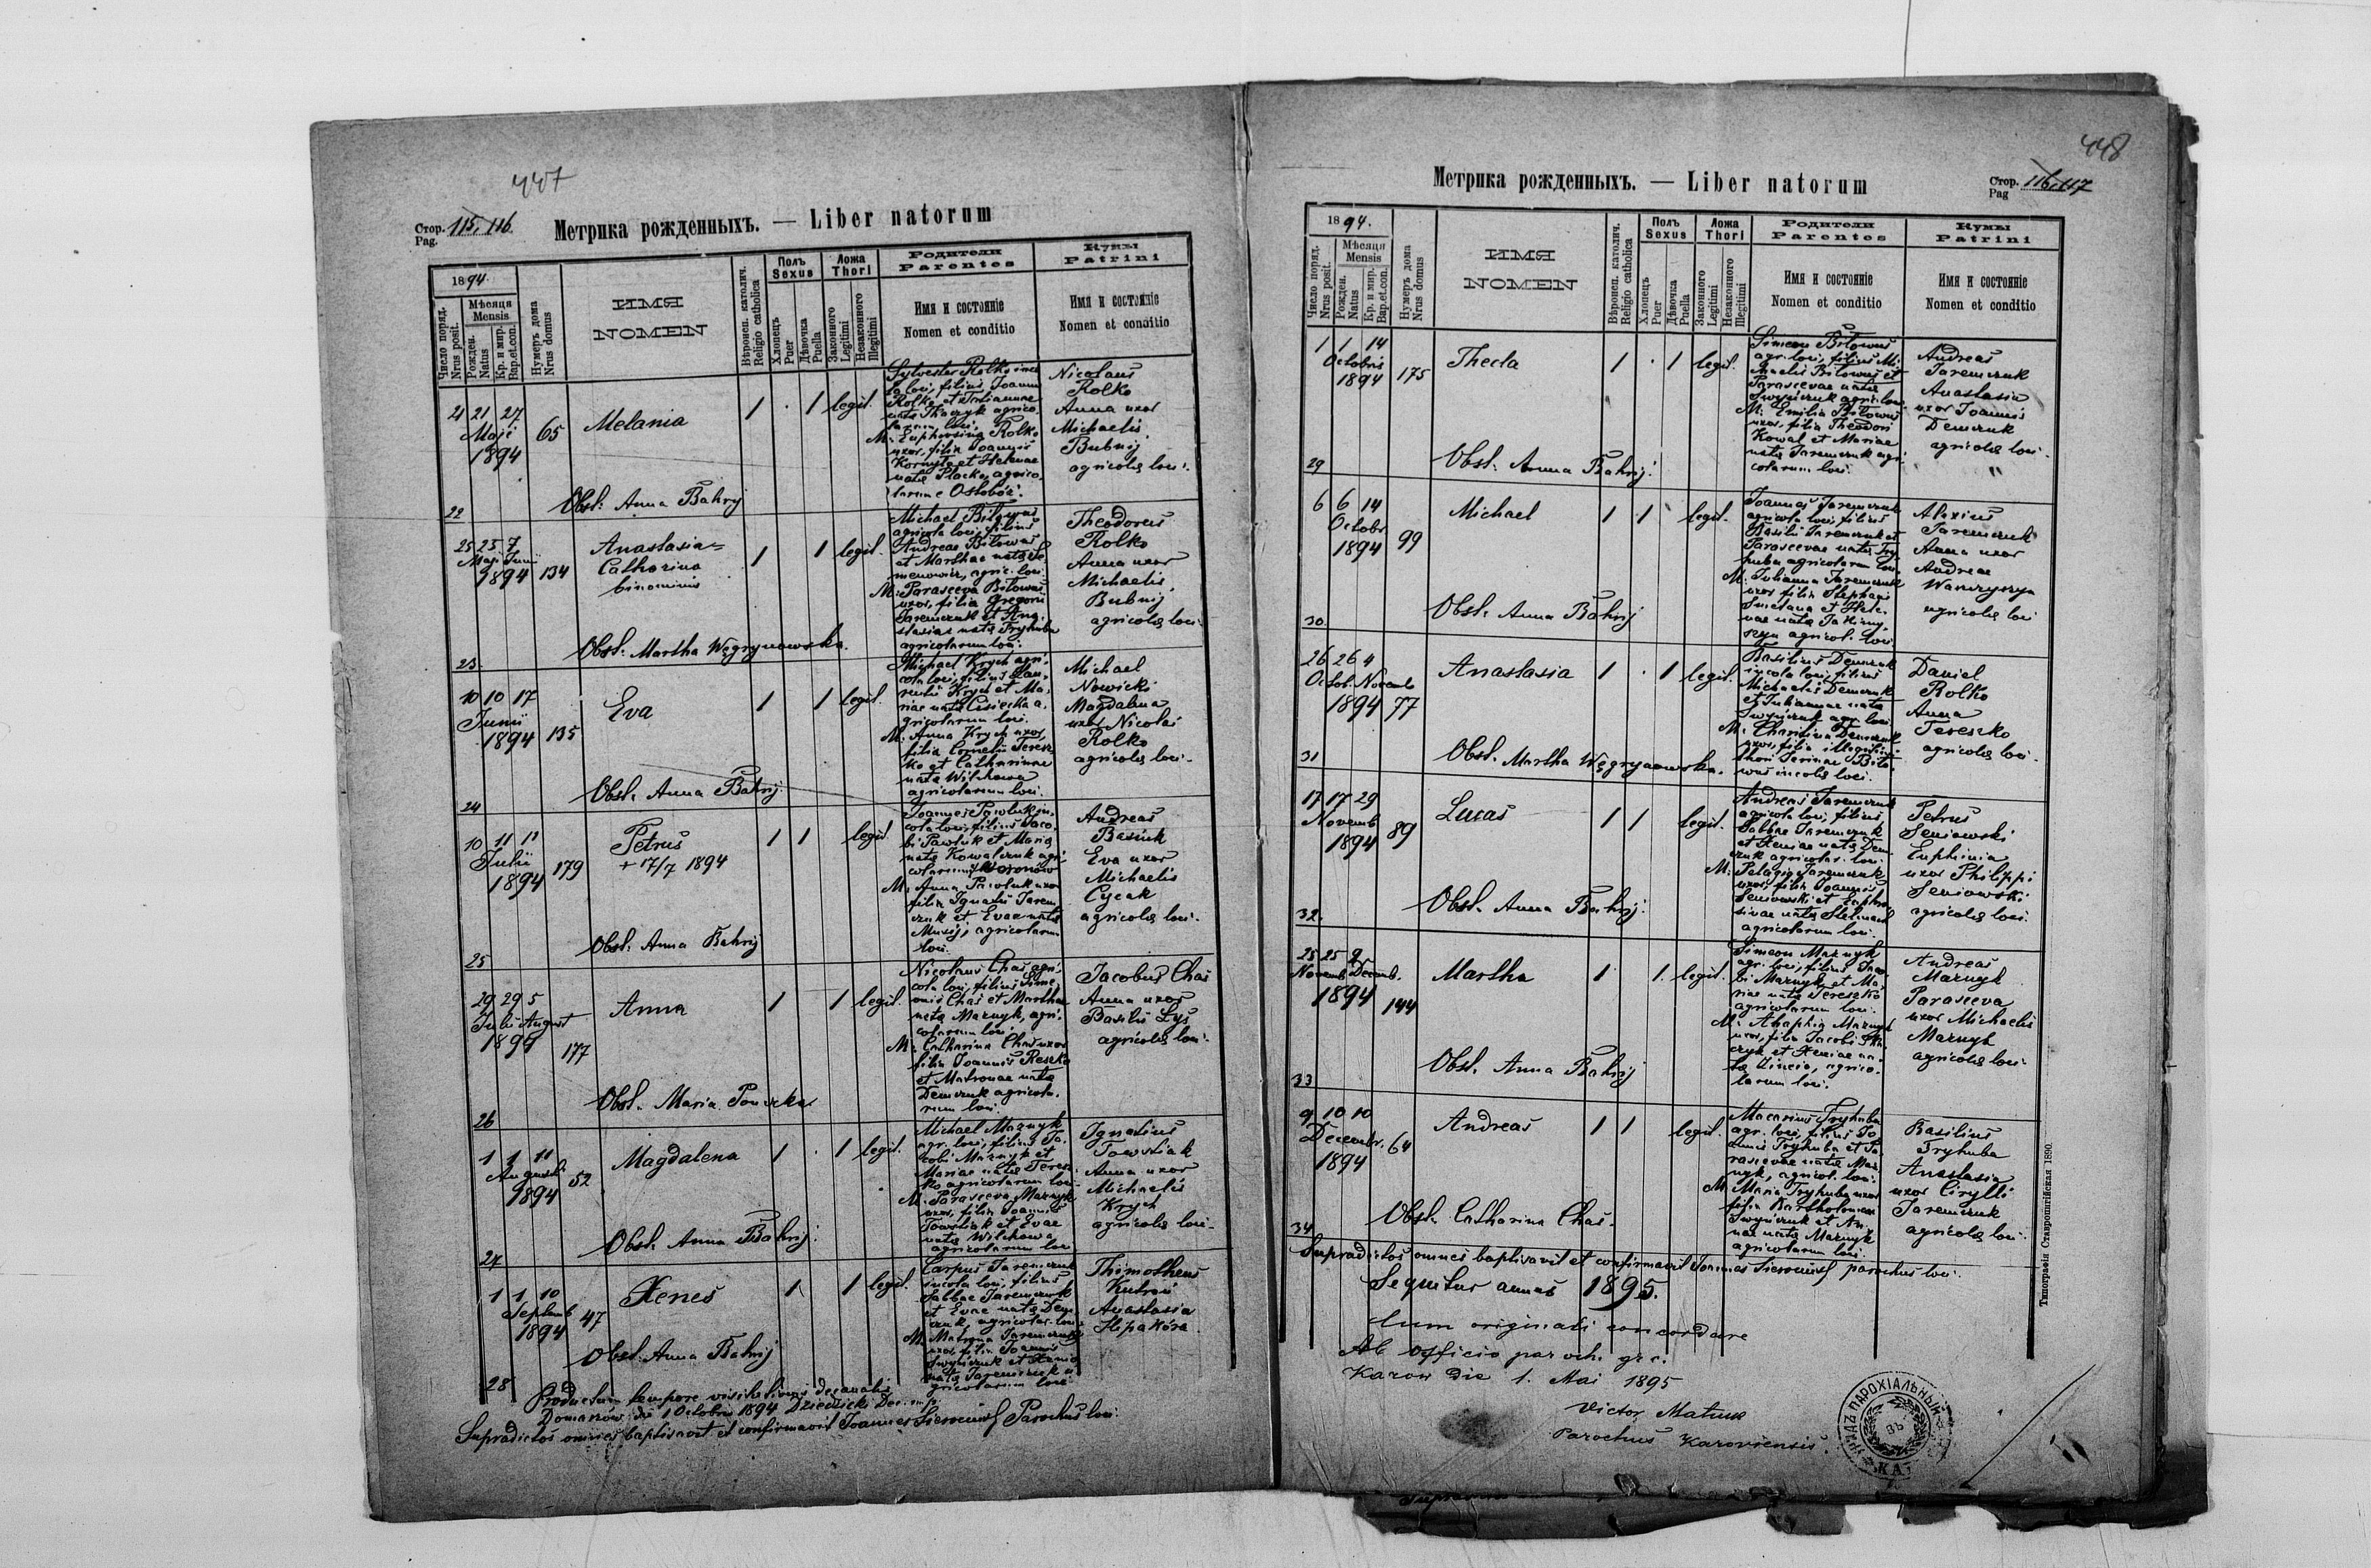 447
Стор. 115, 116.
Pag.
Метрика рожденныхъ. — Liber natorum
1894.
Число поряд.
Nrus posit.
Мѣсяця
Mensis
Рожден.
Natus
Кр. и мир.
Bap.et.con.
Нумеръ дома
Nrus domus
ИМЯ
NOMEN
Вѣроисп. католич.
Religio catholica
Полъ
Sexus
Хлопець
Puer
Дѣвочка
Puella
Ложа
Thori
Законного
Legitimi
Незаконного
Illegitimi
Родители
Parentes
Имя и состояніе
Nomen et conditio
Кумы
Patrini
Имя и состояніе
Nomen et conditio
21 21 27
Maji
1894
65
Melania
1 · 1 legit.
Sylvester Rolko
loci, filius Joannis
Rolko et Juliannae
natae Tkaczyk agrico-
larum loci.
M: Euphrosina Rolko
uxor, filia Joannis
Kornyta et Helenae
natae agrico-
larum e
Nicolaus
Rolko
Anna uxor
Michaelis
Bubnij
agricolae loci.
Obst: Anna Bahrij
22
25 25 7
Maji Junii
1894
134
Anastasia=
Catharina
binominis
1 1 legit.
Michael Biłowus
agricola loci, filius
Andreae Biłowus
et Marthae natae Se-
menowicz, agric. loci
M: Parasceva Biłowus
uxor, filia Gregorii
Jaremczuk et Ana-
stasiae natae Tryhuba
agricolarum loci.
Theodorus
Rolko
Anna uxor
Michaelis
Bubnij
agricolae loci.
Obst: Martha Węgrynowska.
23.
10 10 17
Junii
1894
135
Eva
1 1 legit.
Michael Krych agri-
cola loci, filius Lau-
rentii Krych et Ma-
riae natae Cisiecka a-
gricolarum loci.
M: Anna Krych uxor,
filia Cornelii Teresz-
ko et Catharinae
nata Wilchowa
agricolarum loci.
Michael
Nowicki
Magdalena
uxor Nicolai
Rolko
agricolae loci.
Obst. Anna Bahrij
24
10 11 11
Julii
1894
179
Petrus
+ 17/7 1894
1 1 legit.
Joannes Pawluk in-
cola loci, filius Jaco-
bi Pawluk et Maria
nata Kowalczuk agri-
colarum
M: Anna Pawluk uxor
filia Ignatii Jarem-
czuk et Evae natae
agricolarum
loci.
Andreas
Basiuk
Eva uxor
Michaelis
Cycak
agricolae loci.
Obst: Anna Bahrij
25
29 29 5
Julii August
1894
177
Anna
1 1 legit.
Nicolaus Chaś agri-
cola loci, filius Sime-
onis Chaś et Martha
nata Maznyk, agri-
colarum loci.
M: Catharina Chaś uxor
filia Joannis Reszko
et Matronae natae
Demczuk agricola-
rum loci.
Jacobus Chaś
Anna uxor
Basilii Lys
agricolae loci.
Obst. Maria
26
1 1 11
Augusti
1894
52
Magdalena
1 · 1 legit.
Michael Maznyk
agr. loci, filius Ja-
cobi Maznyk et
Mariae natae Teresz-
ko agricolarum loci
M: Parasceva Maznyk
uxor, filia Joannis
Towstiak et Evae
natae Wilchowa
agricolarum loci
Ignatius
Towstiak
Anna uxor
Michaelis
Krych
agricolae loci.
Obst. Anna Bahrij.
27
1 1 10
Septemb
1894
47
Xenes
1 1 legit.
Carpus Jaremczuk
incola loci, filius
Sabbae Jaremczuk
et Evae natae Dem-
czuk, agricolar. loci
M: Matrona Jaremczuk
uxor, filia Joannis
Swyńczuk et Xenia
nata Jaremczuk a-
gricolarum loci
Thimotheus
Anastasia
Obst. Anna Bahrij
28
Productum tempore visitationis decanalis
Domaszów die 1 Octobris 1894 Dziedzicki Dec. mp.
Supradictos omnes baptisavit et confirmavit Joannes Parochus loci.
448
Метрика рожденныхъ. — Liber natorum
Стор. 116, 117
Pag
1894.
Число поряд.
Nrus posit.
Мѣсяця
Mensis
Рожден.
Natus
Кр. и мир.
Bap.et.con.
Нумеръ дома
Nrus domus
ИМЯ
NOMEN
Вѣроисп. католич.
Religio catholica
Полъ
Sexus
Хлопець
Puer
Дѣвочка
Puella
Ложа
Thori
Законного
Legitimi
Незаконного
Illegitimi
Родители
Parentes
Имя и состояніе
Nomen et conditio
Кумы
Patrini
Имя и состояніе
Nomen et conditio
1 1 14
Octobris
1894
175
Thecla
1 · 1 legit.
Simeon Biłowus
agr. loci, filius Mi-
chaelis Biłowus et
Parascevae natae
Swyńczuk agric. loci
M: Emilia Biłowus
uxor, filia Theodori
Kowal et Mariae
natae Jaremczuk agri-
colarum loci.
Andreas
Jaremczuk
Anastasia
uxor Joannis
Demczuk
agricolae loci.
Obst: Anna Bahrij.
29
6 6 14
Octobr.
1894
99
Michael
1 1 legit.
Joannes Jaremczuk
agricola loci, filius
Basilii Jaremczuk et
Parascevae natae Try-
huba agricolarum loci.
M: Julianna Jaremczuk
uxor filia Stephani
Smetana et Hele-
nae natae
agricol. loci
Alexius
Jaremczuk
Anna uxor
Andreae
Wawryszyn
agricolae loci
Obst. Anna Bahrij
30
26 26 4
Octob. Novemb
1894
77
Anastasia
1 · 1 legit.
Basilius Demczuk
incola loci, filius
Michaelis Demczuk
et Juliannae natae
Swyńczuk agr. loci
M: Charitina Demczuk
uxor, filia illegitimi
thori Irinae Biło-
wus incolae loci.
Daniel
Rolko
Anna
Tereszko
agricolae loci.
Obst. Martha Węgrynowska.
31
17 17 29
Novemb
1894
89
Lucas
1 1 legit.
Andreas Jaremczuk
agricola loci, filius
Sabbae Jaremczuk
et Xeniae natae Dem-
czuk agricolar. loci.
M: Pelagia Jaremczuk
uxor, filia Joannis
Seniowski et Euphro-
sinae natae
agricolarum loci.
Petrus
Seniowski
Euphimia
uxor Philippi
Seniowski
agricolae loci.
Obst. Anna Bahrij.
32.
25 25 9
Novemb Decemb.
1894
144
Martha
1 1. legit.
Simeon Maznyk
agr. loci, filius Jaco-
bi Maznyk et Ma-
riae natae Tereszko
agricolarum loci.
M: Ahaphia Maznyk
uxor, filia Jacobi
et Xeniae na-
tae agrico-
larum loci.
Andreas
Maznyk
Parasceva
uxor Michaelis
Maznyk
agricolae loci
Obst. Anna Bahrij
33
9 10 10
Decembr.
1894
64
Andreas
1 1 legit.
Macarius Tryhuba
agr. loci, filius Jo-
annis Tryhuba et Pa-
rascevae natae Maz-
nyk, agricol. loci.
M: Maria Tryhuba uxor
filia Bartholomaei
Swyńczuk et An-
nae natae Maznyk
agricolarum loci.
Basilius
Tryhuba
Anastasia
uxor Cirylli
Jaremczuk
agricolae loci.
Obst. Catharina Chaś.
34
Supradictos omnes baptisavit et confirmavit Joannes parochus loci.
Sequitur annus 1895.
Cum originali concordare
Ab officio paroch. gr. c.
Karow die 1. Mai 1895
Victor Matiuk
Parochus Karoviensis.
УРЯДЪ ПАРОХІАЛЬНЫЙ
Типографія Ставропигійская 1890.